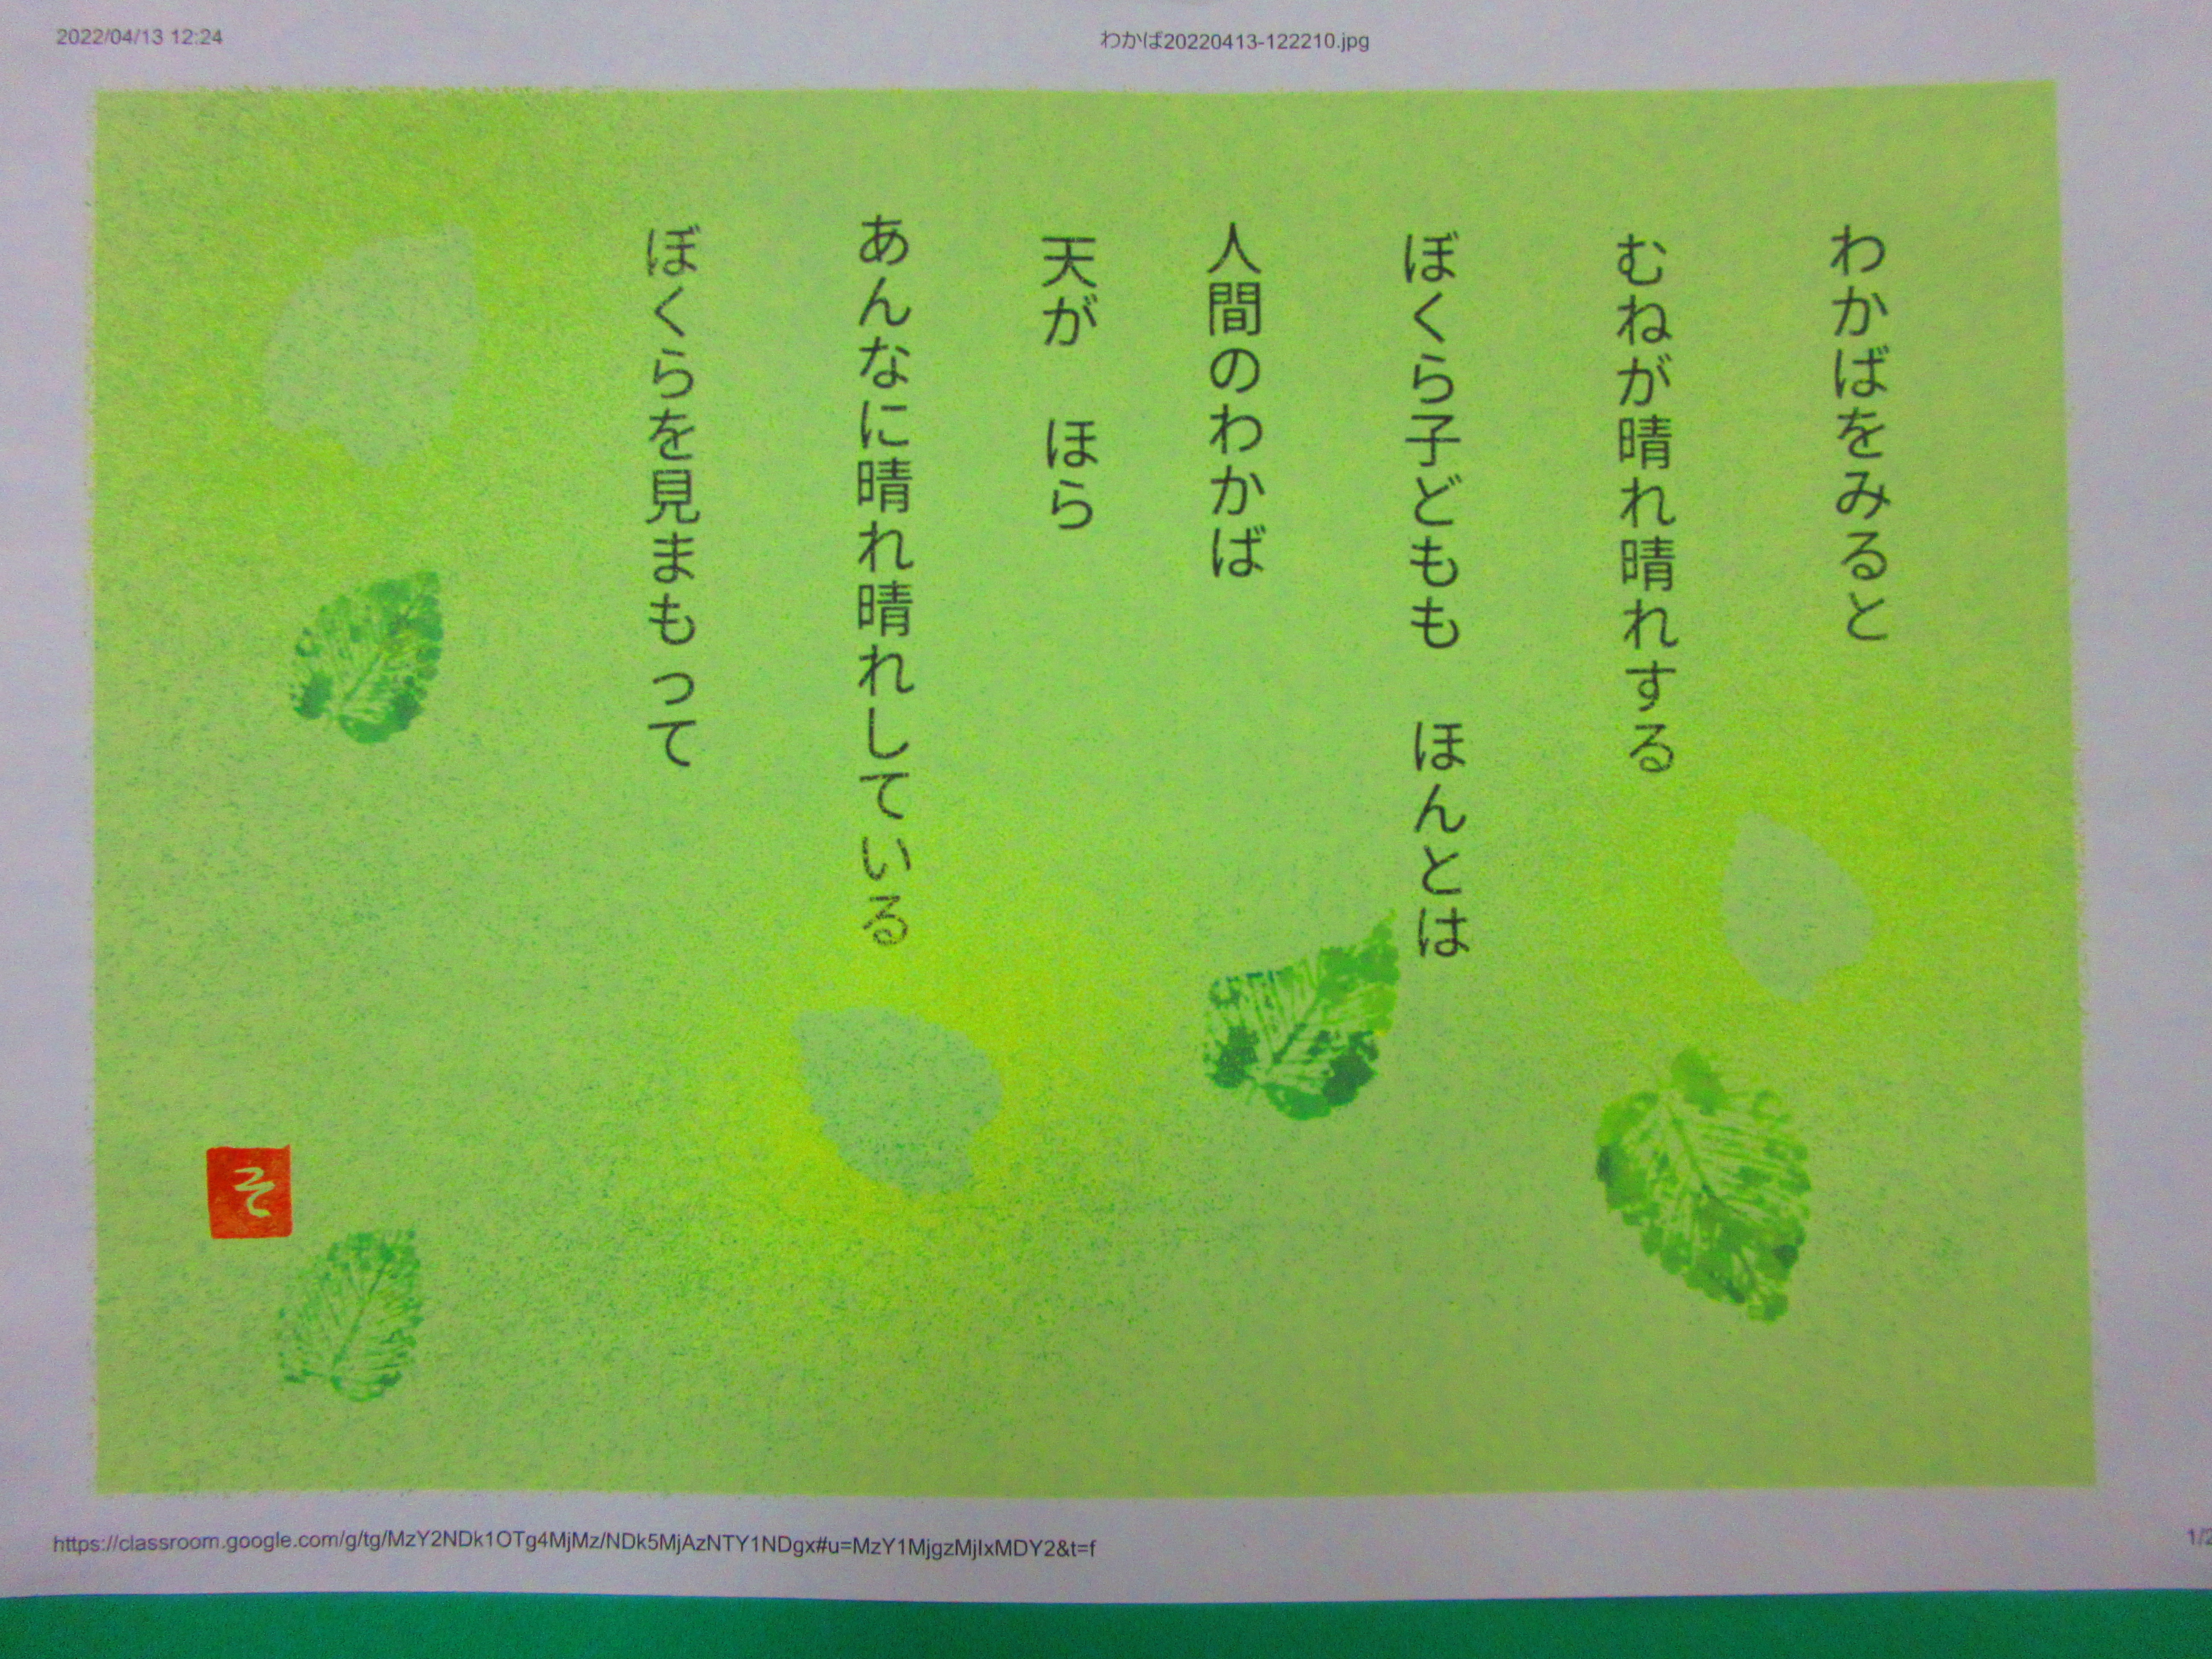 2022/04/13 12:24
わかば20220413-122210.jpg
わかばをみると
むねが晴れ晴れする
ぼくら子どもも　ほんとは
人間のわかば
天が　ほら
あんなに晴れ晴れしている
ぼくらを見まもって
そ
https://classroom.google.com/g/tg/MzY2NDk1OTg4MjMz/NDk5MjAzNTY1NDgx#u=MzY1MjgzMjIxMDY2&t=f